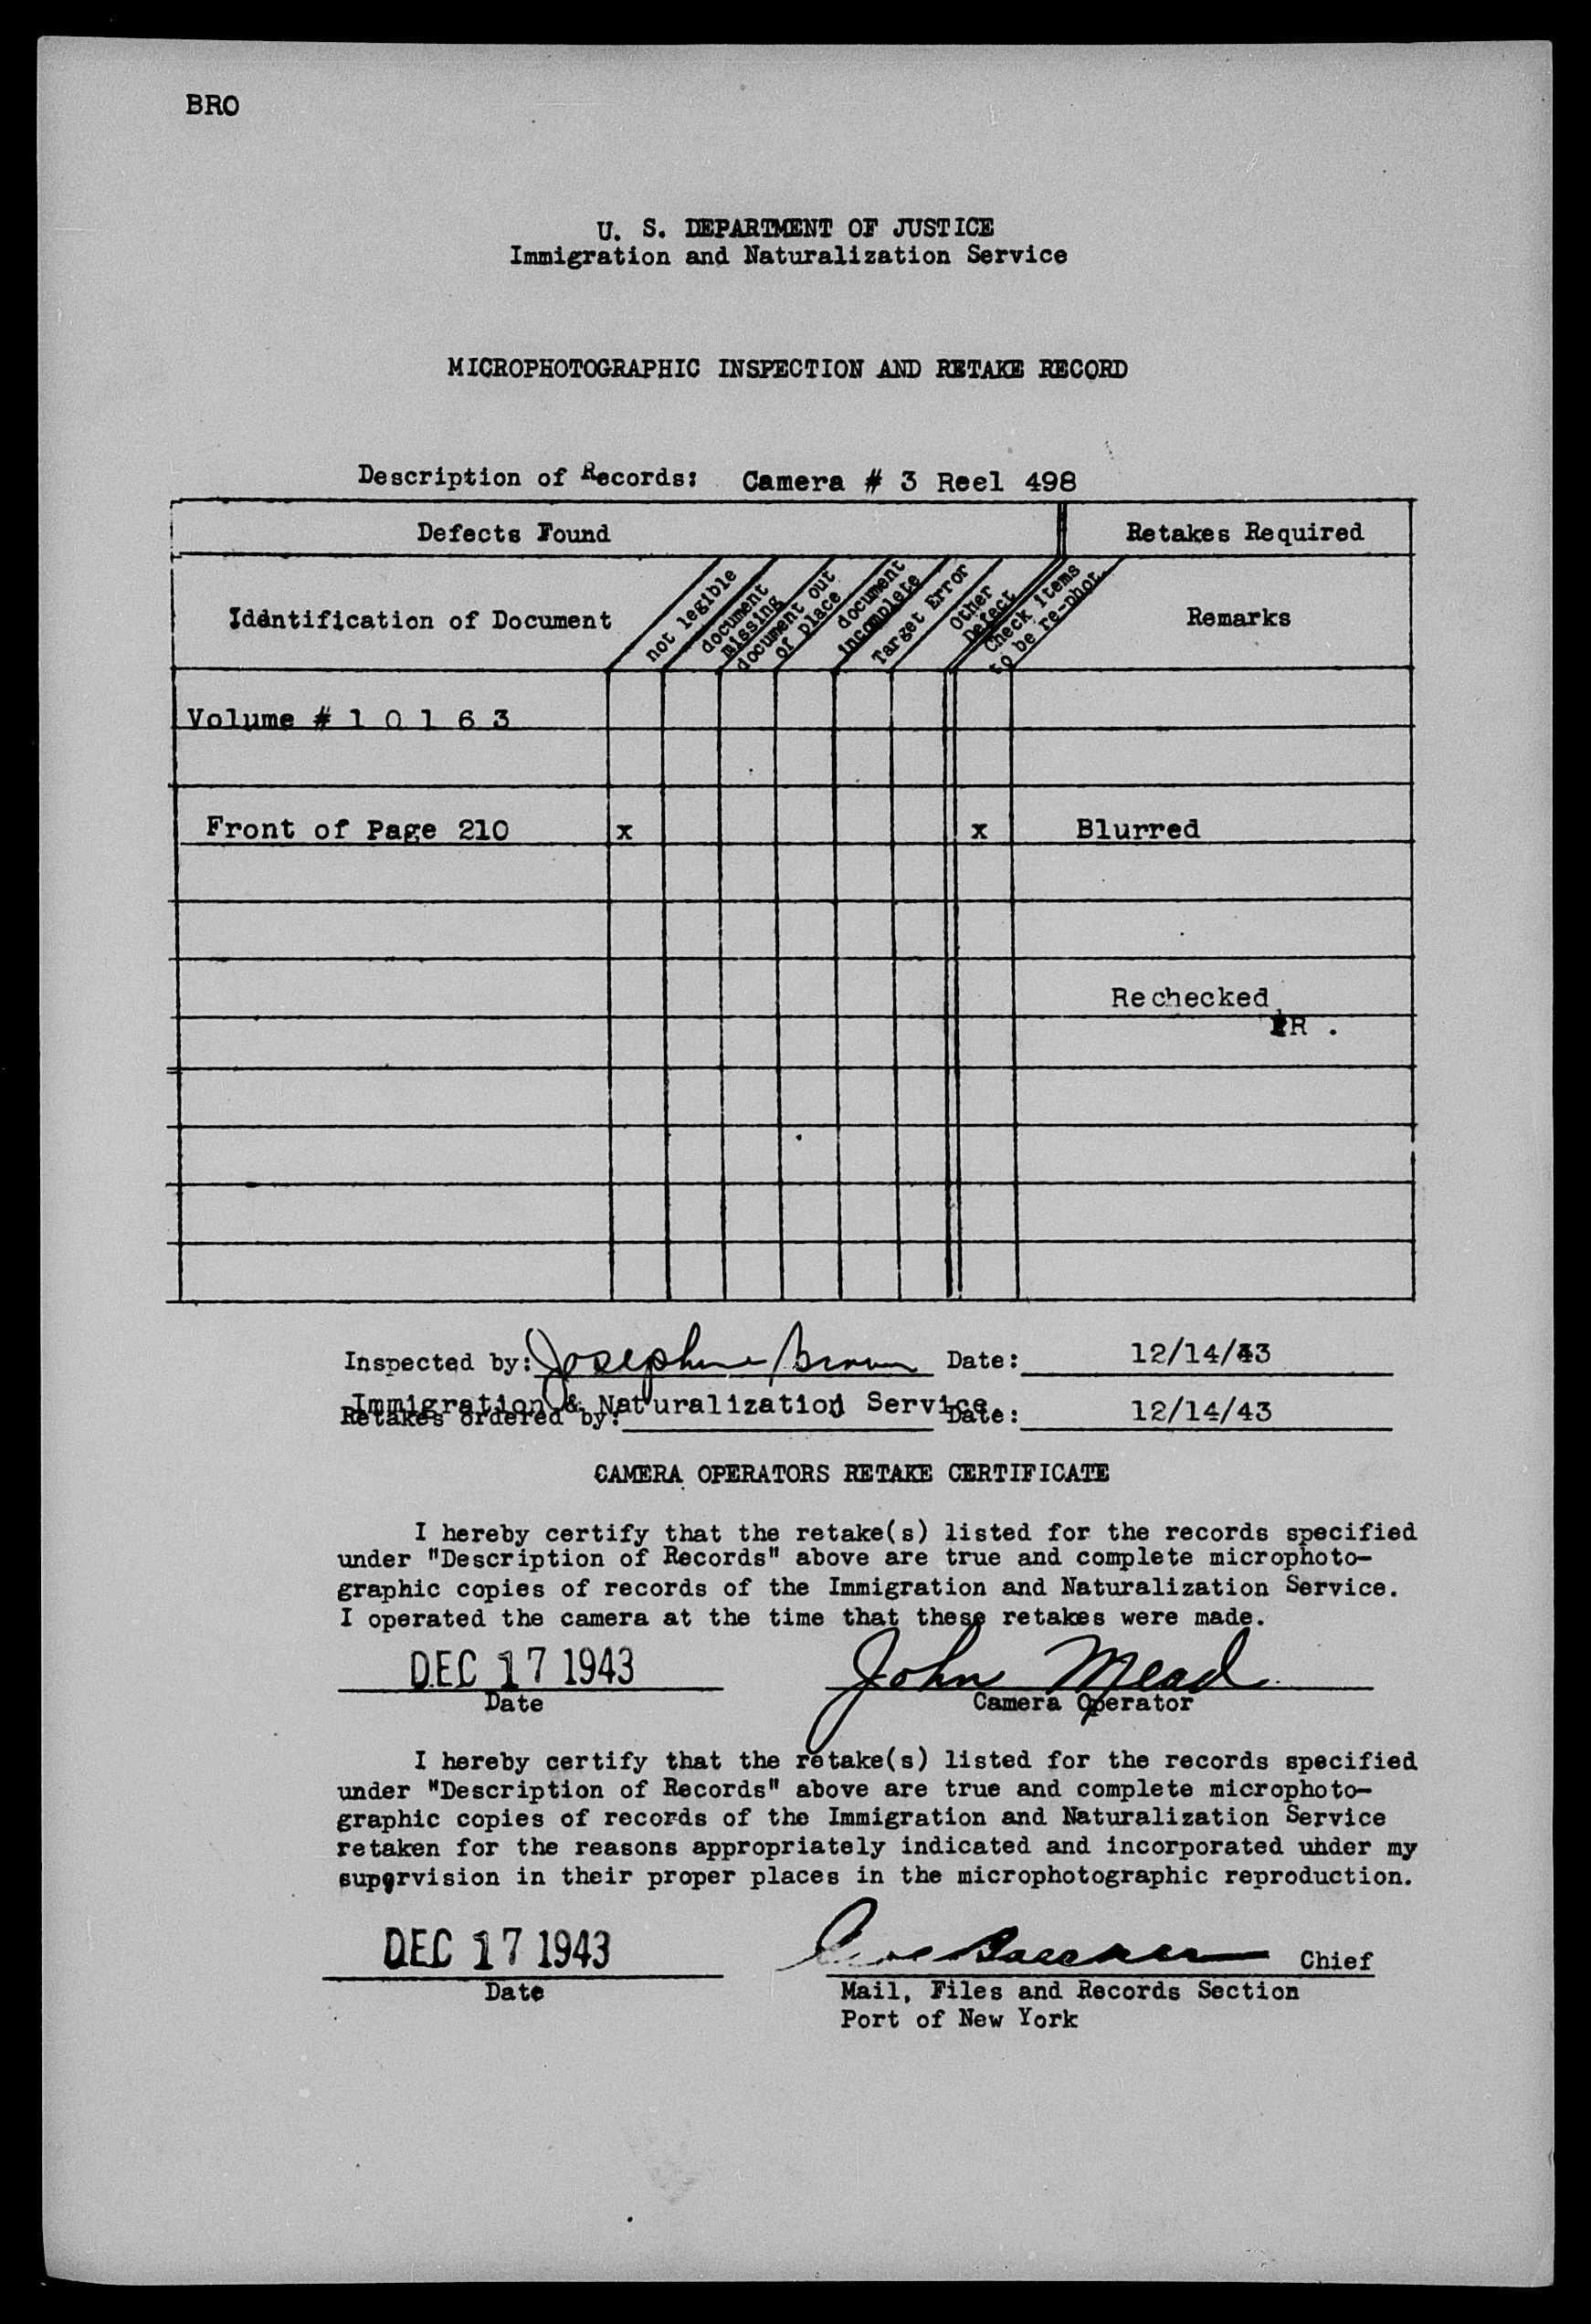 BRO
U. S. DEPARTMENT OF JUSTICE
Immigration and Naturalization Service
MICROPHOTOGRAPHIC INSPECTION AND RETAKE RECORD
Description of Records: Camera # 3 Reel 498
Defects Found
Retakes Required
Identification of Document
not legible
document missing
document out of place
document incomplete
Target Error
Other Defect
Check items to be re-phot.
Remarks
Volume # 1 0 1 6 3
Front of Page 210 x x Blurred
Rechecked
R .
Inspected by: Josephine Brown Date: 12/14/43
Immigration & Naturalization Service
Retakes ordered by: Date: 12/14/43
CAMERA OPERATORS RETAKE CERTIFICATE
I hereby certify that the retake(s) listed for the records specified
under "Description of Records" above are true and complete microphoto-
graphic copies of records of the Immigration and Naturalization Service.
I operated the camera at the time that these retakes were made.
DEC 17 1943 John Mead
Date Camera Operator
I hereby certify that the retake(s) listed for the records specified
under "Description of Records" above are true and complete microphoto-
graphic copies of records of the Immigration and Naturalization Service
retaken for the reasons appropriately indicated and incorporated uhder my
supervision in their proper places in the microphotographic reproduction.
DEC 17 1943 Chief
Date Mail, Files and Records Section
Port of New York